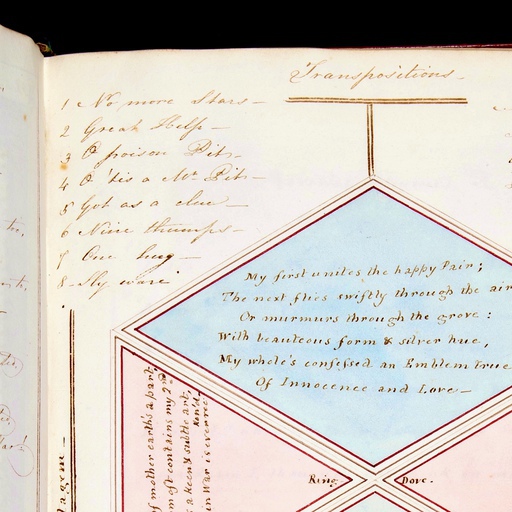 Transpositions
1 No more Stars
2 Great Help
3 O poison Pit
4 O 'tis a Mr Pit
5 Got as a clue
6 Nine thumps
7 Our hug
8 Sly ware
My first unites the happy Pair;
The next flies swiftly through the air
Or murmurs through the grove:
With beauteous form & silver hue,
My whole's confessed an Emblem true
Of Innocence and Love
Ring Dove.
f mother earth's a part,
most contains my 2nd
a keen & subtle art,
in War is ever
agem